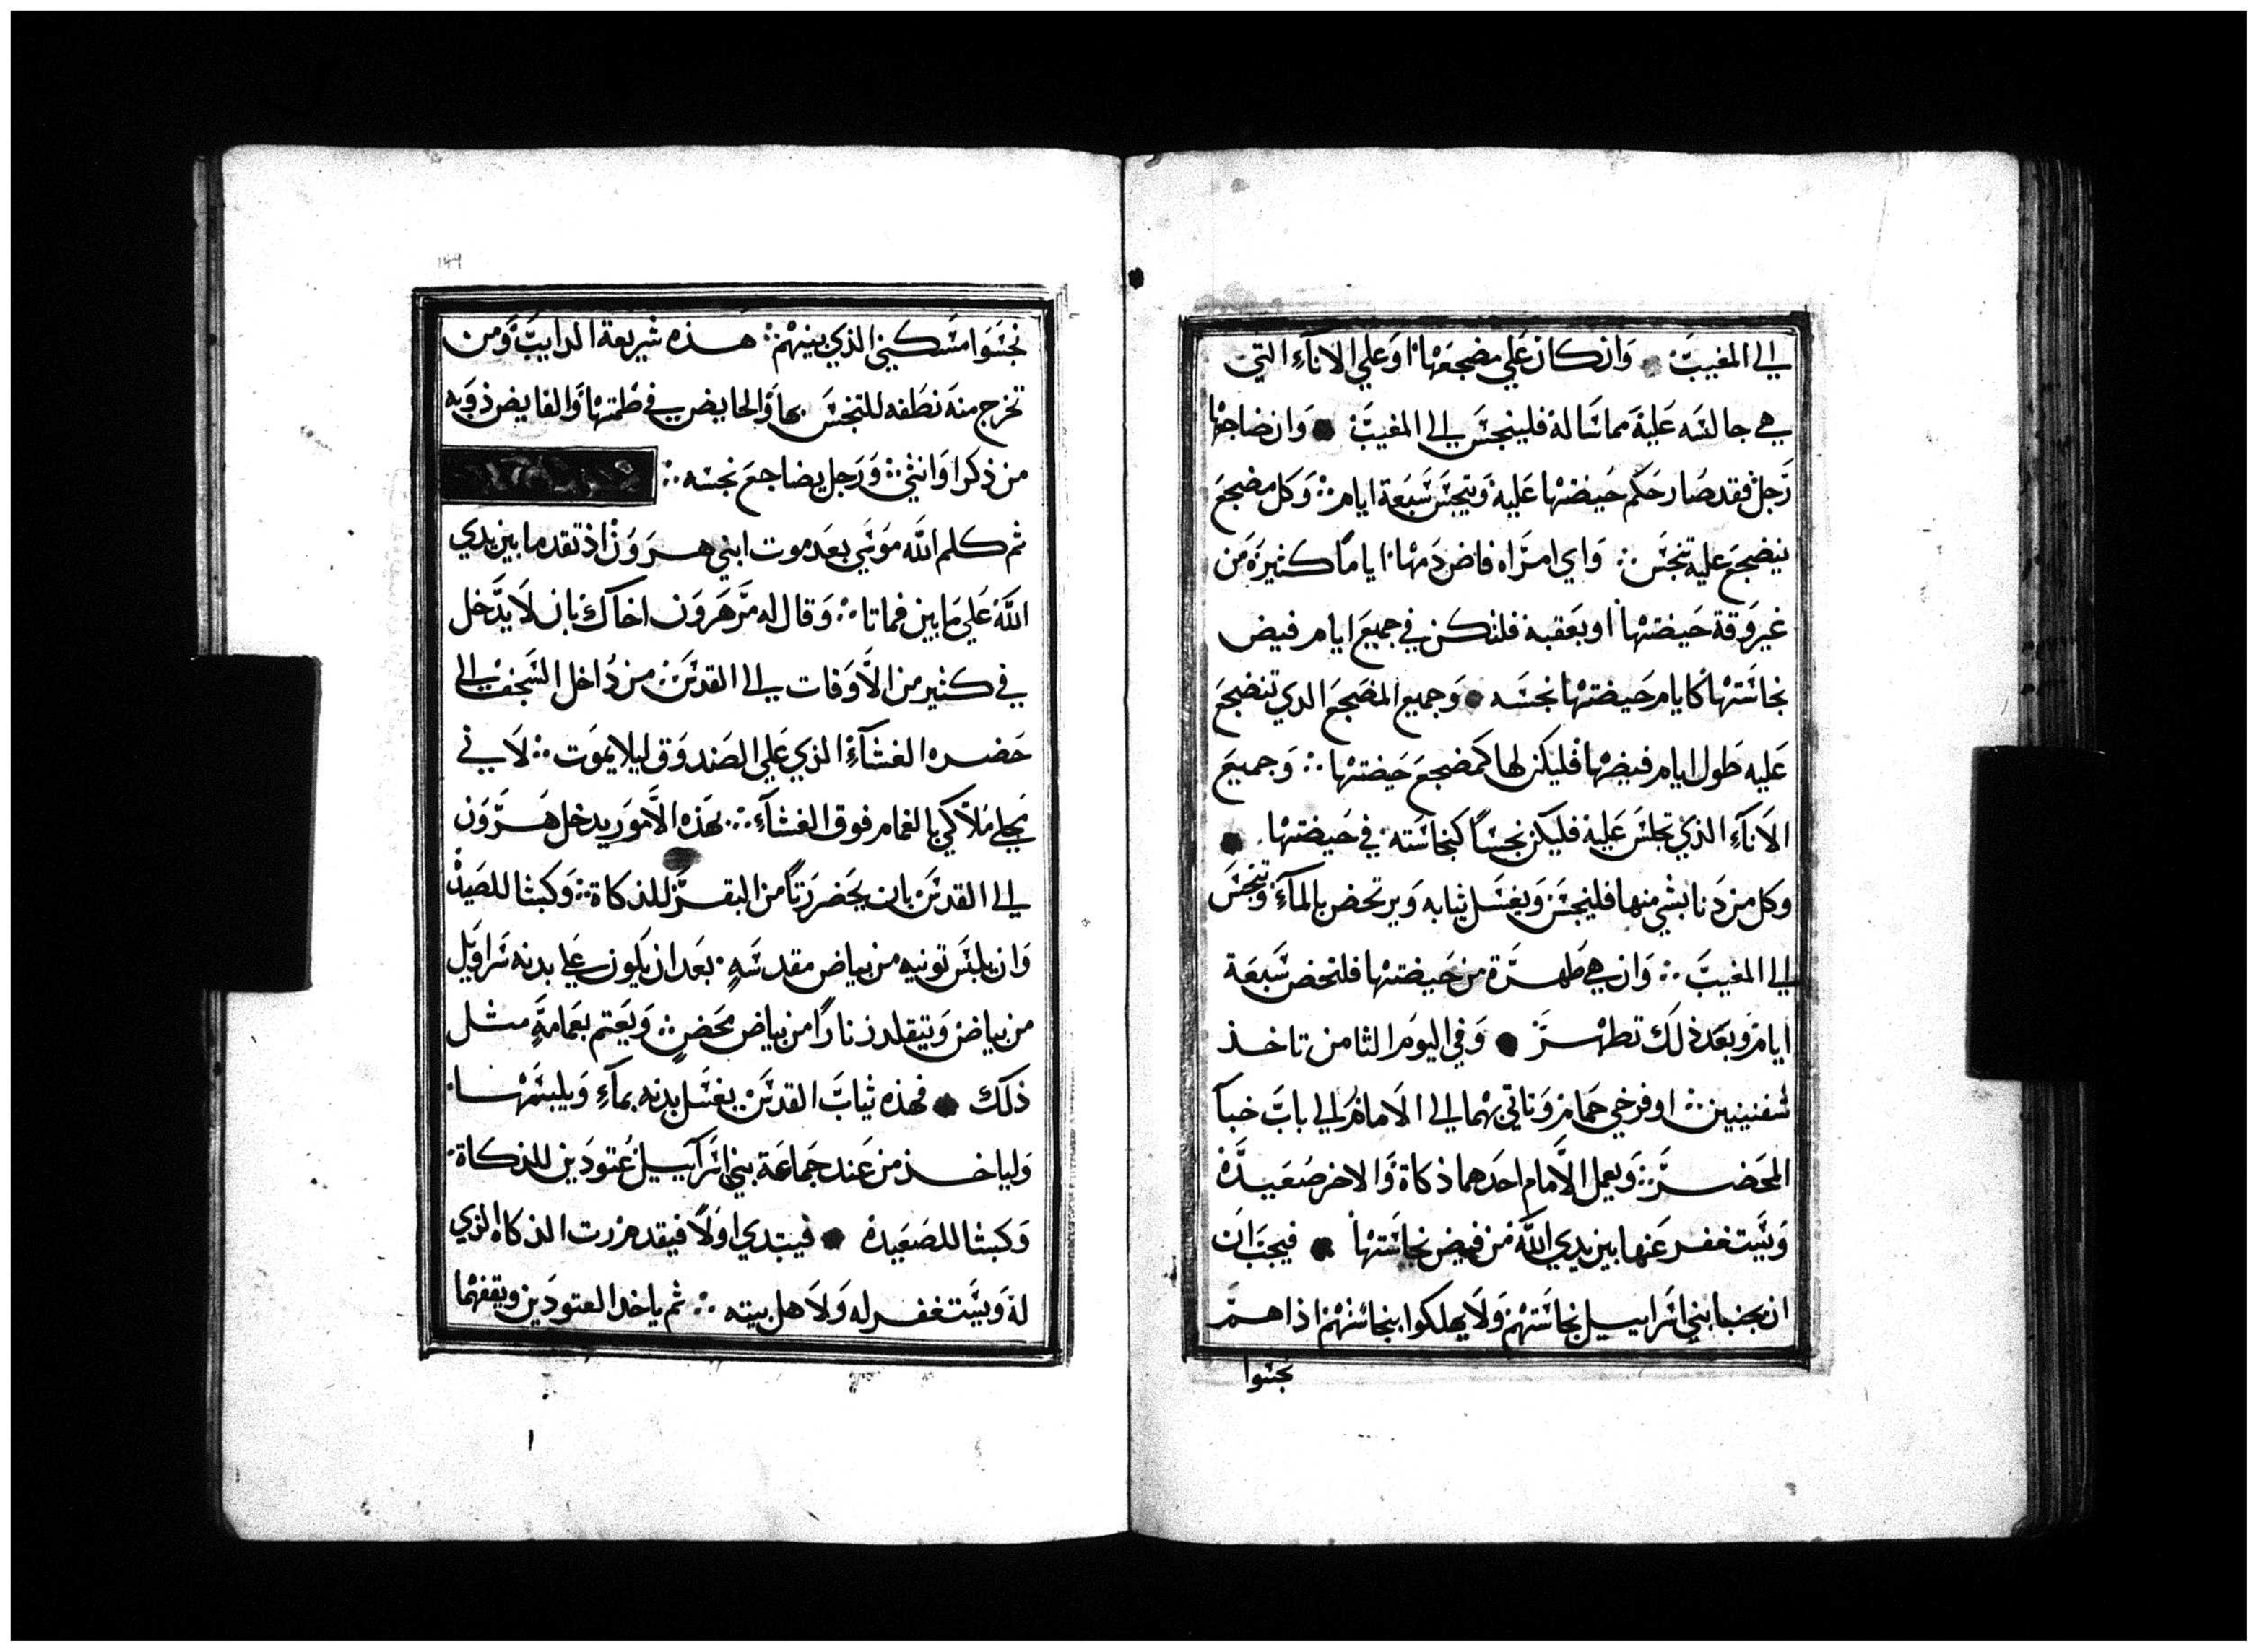 الي المغيب وان كان علي مضجعها او علي الاناء التي
هي جالسه علية مماساله فلينجس الي المغيب وان ضاجعها
رجل فقد صار حكم حيضتها علية وينجس سبعة ايام وكل مضجع
ينضجع عليه تنجس واي امراه فاض دمها اياما كثيرة من
غير وقة حيضتها او بعقبة فلتكن في جميع ايام فيض
نجاستها كايام حيضتها نجسه وجميع المضجع الدي تنضجع
عليه طول ايام فيضها فليكن لها كمضجع حيضتها وجميع
الاناء الذي تجلس علية فليكن نجسا كنجاسته في حيضتها
وكل من دنا بشي منها فلينجس ويغسل ثيابه ويرتحض بالماء وينجس
الي المغيب وان هي طهرة من حيضتها فلتحض سبعة
ايام وبعد ذلك تطهر وفي اليوم الثامن تاخذ
شفنينين او فرخي حمام وتاتي بهما الي الامام الي باب خباء
المحضر ويعمل الامام احدهما ذكاة والاخر صعيدة
ويستغفر عنها بين يدي الله من فيض نجاستها فيجب ان
ان يجنبا بني اسراييل نجاستهم ولا يهلكوا بنجاستهم اذا هم
نجسوا
149
نجسوا مسكني الذي بينهم هذه شريعة الدايب ومن
تخرج منه نطفه للتنجس بها والحايض في طمتها والفايض ذوبه
من ذكر او انثي ورجل يضاجع نجسه
ثم كلم الله موسي بعد موت ابني هرون اذ تقدما بين يدي
الله علي مابين فماتا وقال له مر هرون اخاك بان لا يدخل
في كثير من الاوقات الي القدس من داخل السجف الي
حضره الغشاء الذي علي الصندوق ليلا يموت لاني
يجلي ملاكي بالغمام فوق الغشاء بهذه الامور يدخل هرون
الي القدس بان يحضر رتا من البقر للذكاة وكبشا للصيد
وان يلبس تونيه من بياض مقدسه بعد ان يكون علي بدنه سراويل
من بياض ويتقلد زنارا من بياض محض ويعتم بعمامة مثل
ذلك فهذه ثياب القدس يغسل بدنه بماء ويلبسها
ولياخذ من عند جماعة بني اسرآييل عتودين للذكاة
وكبشا للصعيده فيبتدي اولا فيقدم رت الذكاه الذي
له ويستغفر له ولاهل بيته ثم ياخد العتودين ويقفهما